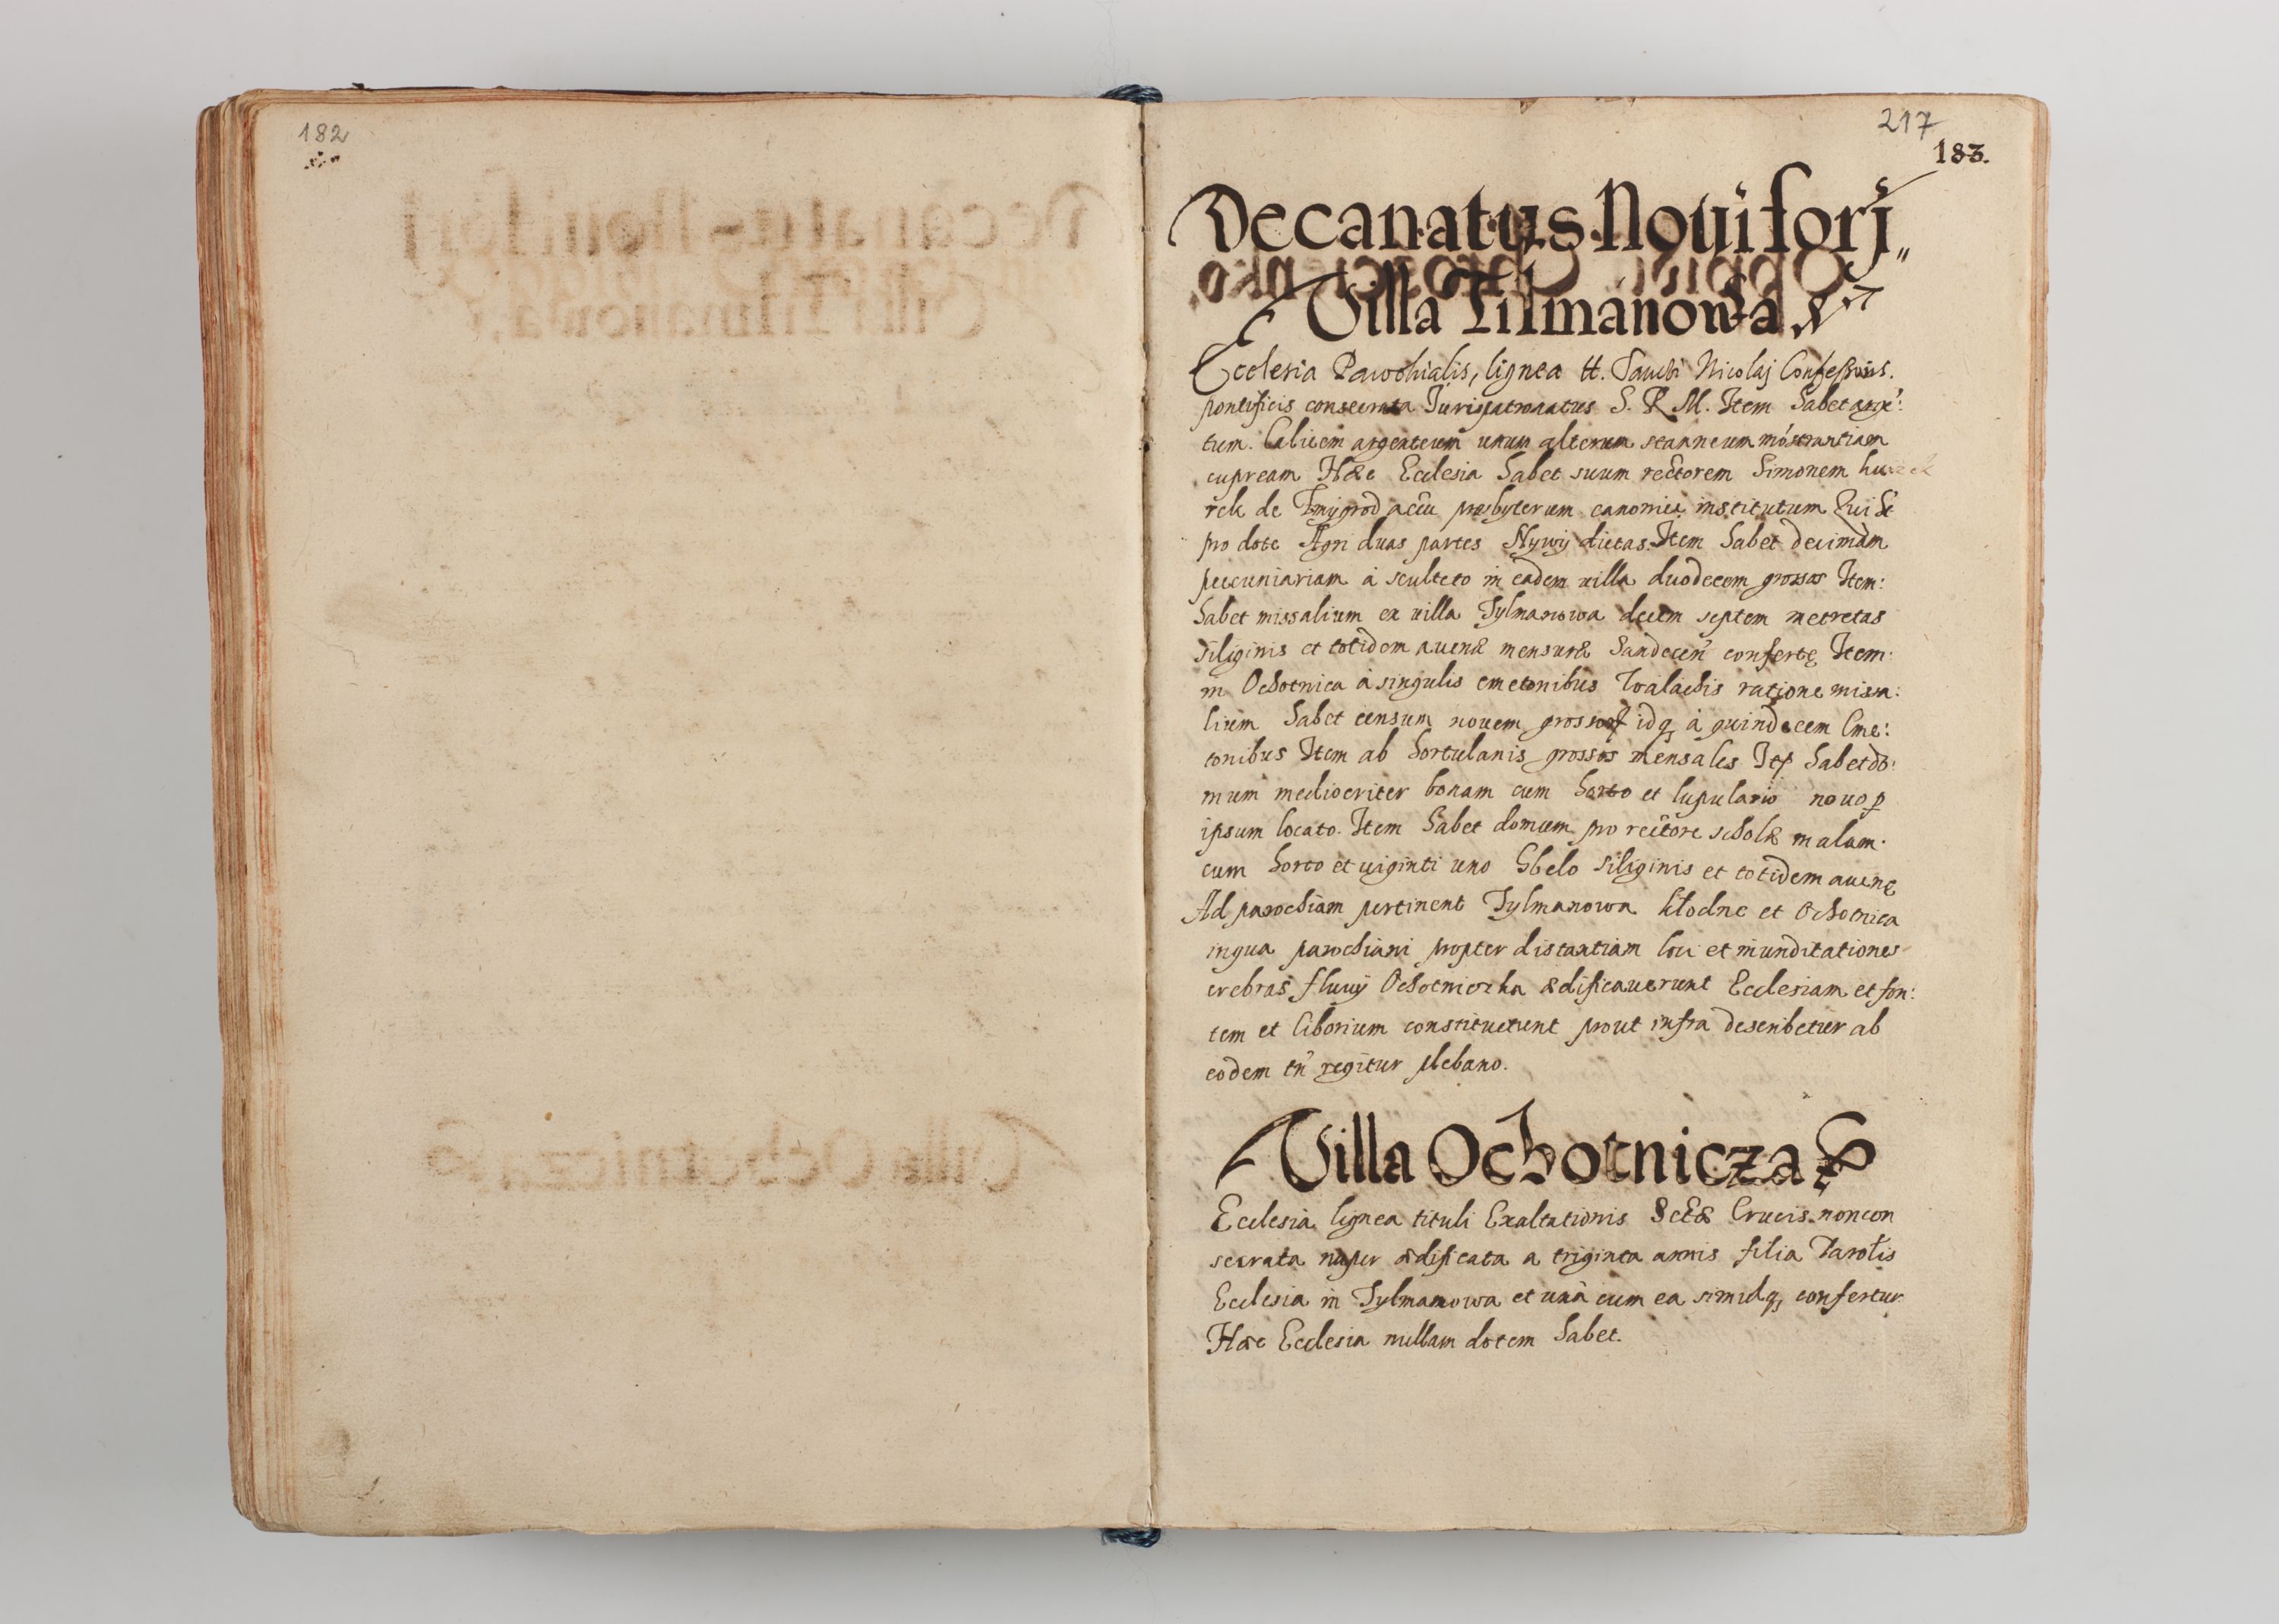 182
217
183.
Decanatus Noui forj
Villa Tilmanowa
Ecclesia Parochialis, lignea tt. Sancti Nicolaj Confessoris.
pontificis consecrata Jurispatronatus S. R. M. Item habet argē:
tum. Calicem argenteum unum alterum stanneum mōstrantiam
cupream Hæc Ecclesia habet suum rectorem Simonem
rek de Zmÿgrod presbyterum canonice institutum Qui ht
pro dote Agri duas partes Nywÿ dictas. Item habet decimam
peccuniariam à sculteto in eadem uilla duodecem grossos Item:
habet missalium ex uilla Tylmanowa decem septem metretas
siliginis et totidem auenæ mensuræ Sandecen̄ confertę Item:
in Ochotnica à singulis cmetonibus Walachis ratione missa:
lium habet censum nouem grossor idq, à quindecem Cme:
tonibus Item ab hortulanis grossos mensales Itē habet do:
mum mediocriter bonam cum horto et lupulario nouo p
ipsum locato. Item habet domum pro rectore scholæ malam.
cum horto et uiginti uno Gbelo siliginis et totidem auenę
Ad parochiam pertinent Tylmanowa Kłodne et Ochotnica
inqua parochiani propter distantiam loci et inunditationes
crebras fluuÿ Ochotniczka ædificauerunt Ecclesiam et fon:
tem et Ciborium constituerunt prout infra describetur ab
eodem tn̄ regitur plebano.
Villa Ochotnicza
Ecclesia lignea tituli Exaltationis Sctæ Crucis noncon
secrata nuper ædificata a triginta annis filia Parotis
Ecclesia in Tylmanowa et unà cum ea simulq, confertur
Hæc Ecclesia nullam dotem habet.